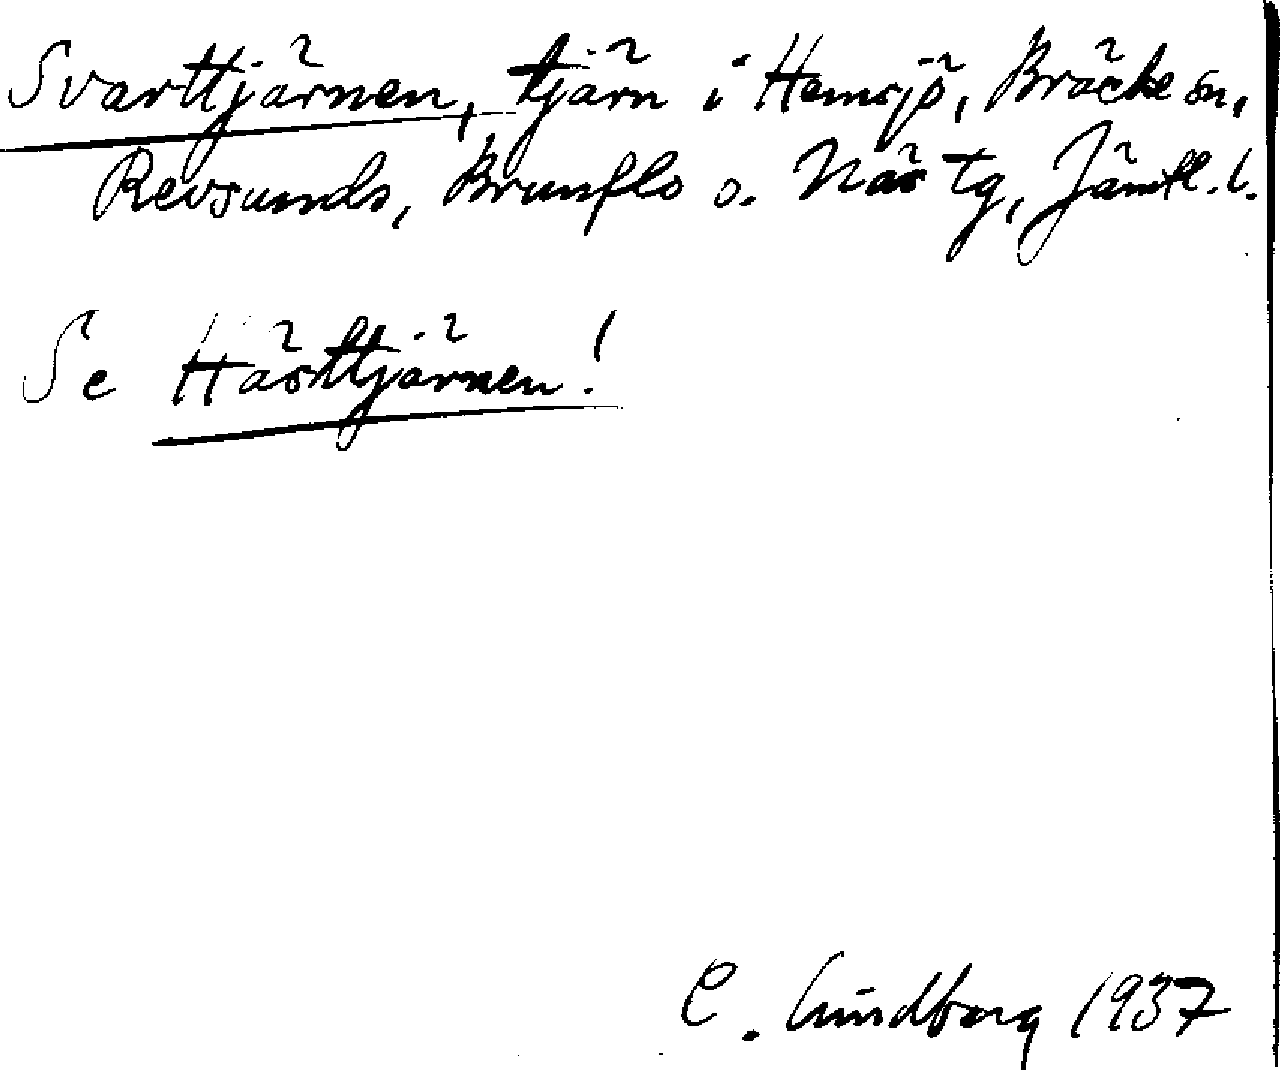 Svarttjärnen, tjärn i Hemsjö, Bräcke sn,
Revsunds, Brunflo o. Näs tg, Jämtl. l.
Se Hästtjärnen!
C. Lindborg 1937